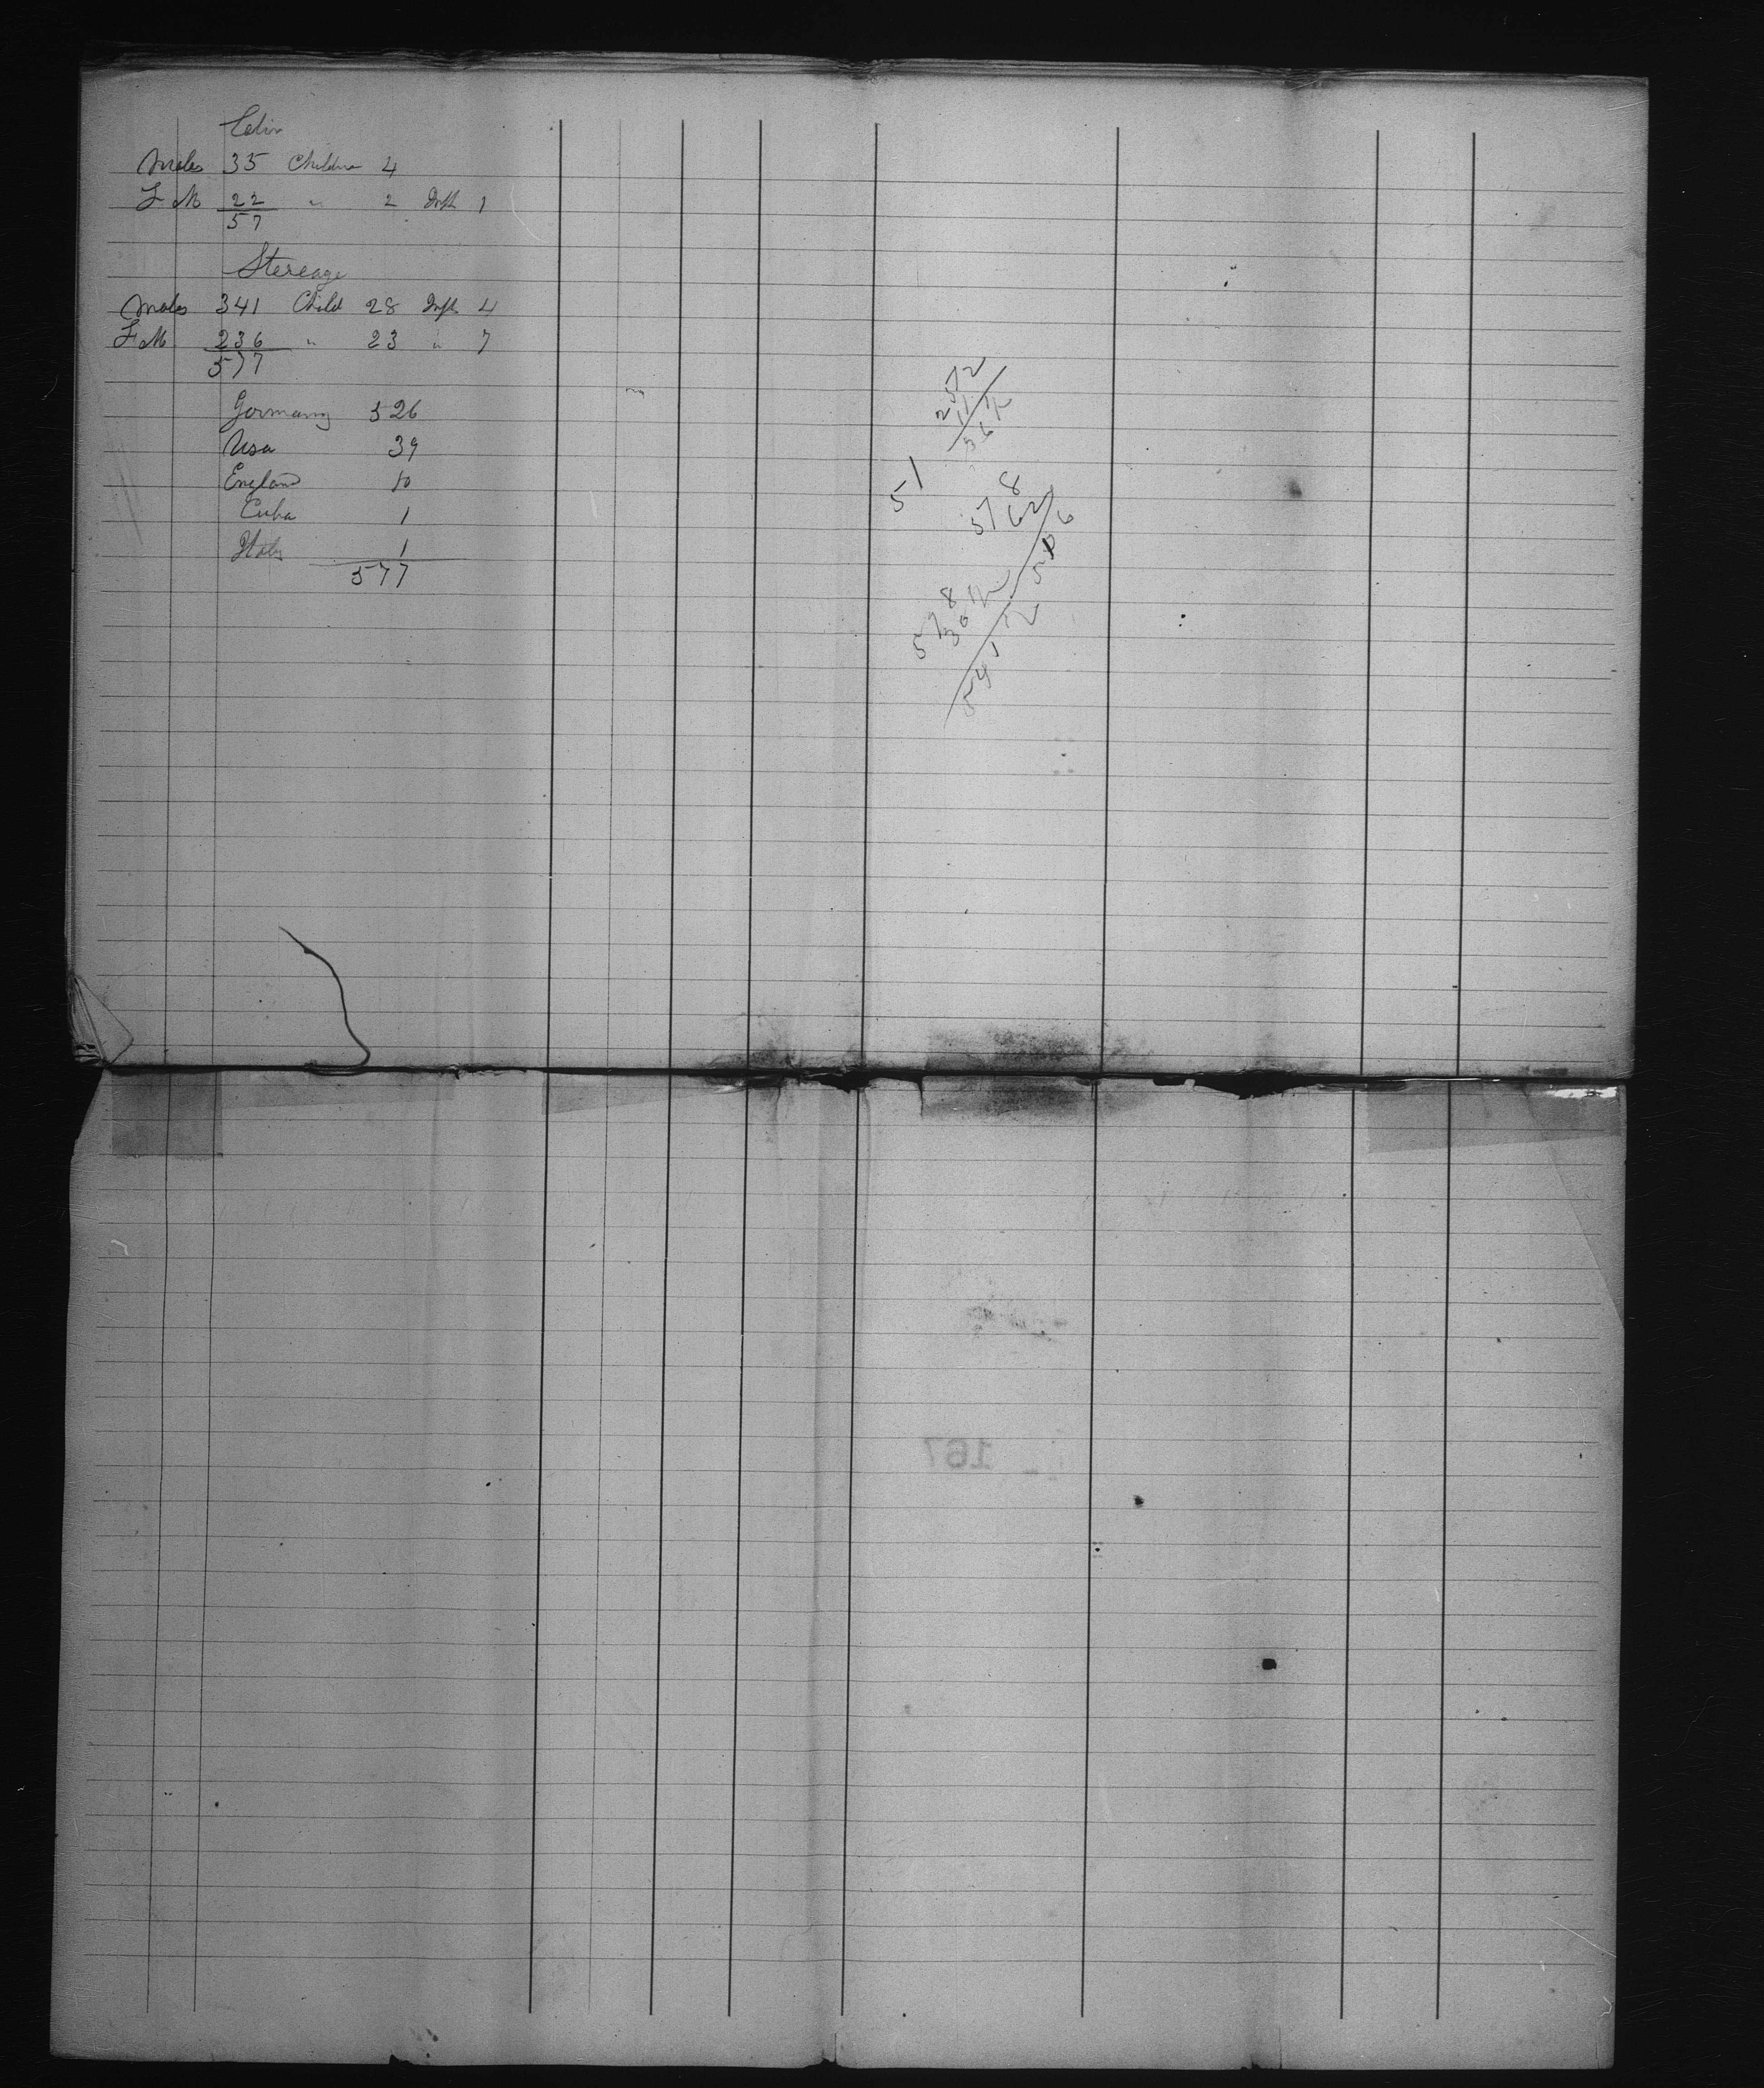 Cabin
Males 35 Children 4
F M 22 " 2 Inft 1
57
Stereage
Males 341 Child 28 Infts 4
F M 236 " 23 " 7
577
Germany 526
Usa 39
England 10
Cuba 1
Italy 1
577
51
578
62
516
578
167